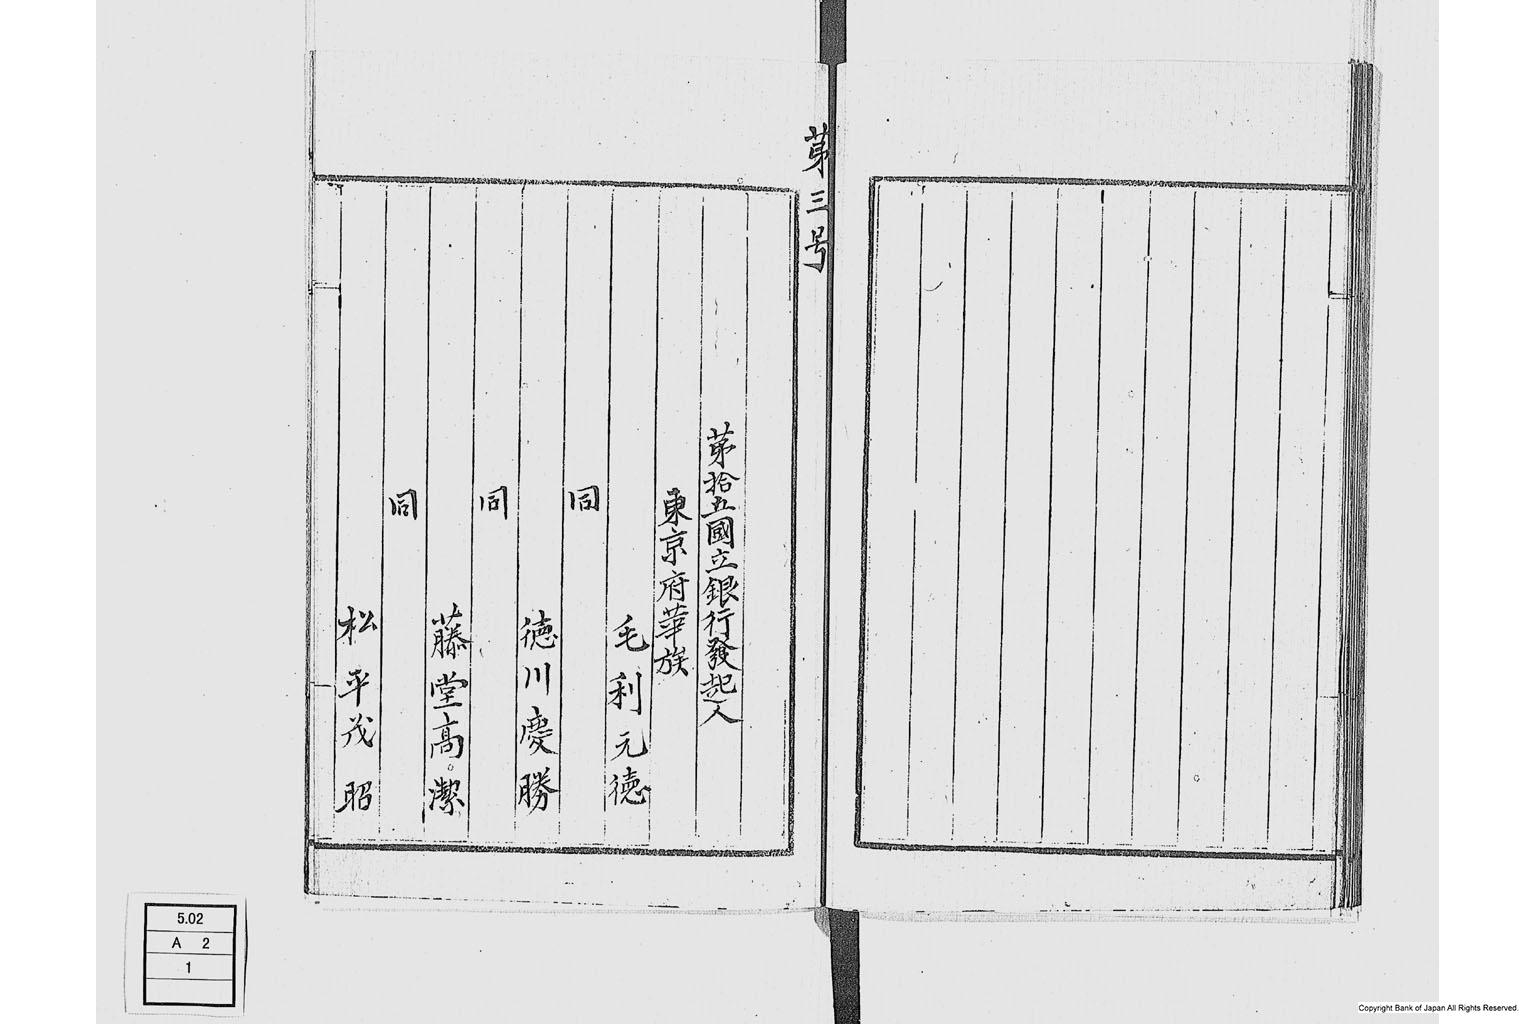 第三号
第拾五國立銀行發起人
東京府華族
毛利元徳
同
徳川慶勝
同
藤堂高潔
同
松平茂昭
5.02
A 2
1
Copyright Bank of Japan All Rights Reserved.